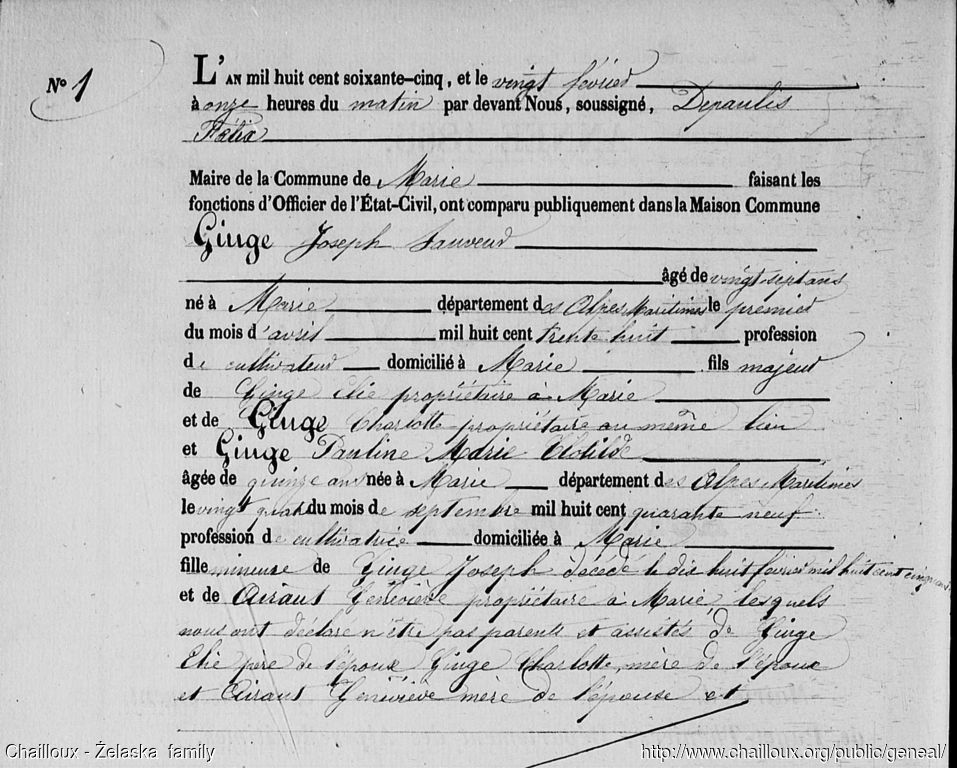 N° 1
L'AN mil huit cent soixante-cinq, et le vingt février
à onze heures du matin par devant Nous, soussigné, Depaulis
Félix
Maire de la Commune de Marie faisant les
fonctions d'Officier de l'État-Civil, ont comparu publiquement dans la Maison Commune
Ginge Joseph Sauveur
âgé de vingt sept ans
né à Marie département des Alpes Maritimes le premier
du mois d'avril mil huit cent trente huit profession
de cultivateur domicilié à Marie fils majeur
de Ginge Elie propriétaire à Marie
et de Ginge Charlotte propriétaire au même lieu
et Ginge Pauline Marie Clotilde
âgée de quinze ans née à Marie département des Alpes Maritimes
le vingt quatre du mois de septembre mil huit cent quarante neuf
profession de cultivatrice domiciliée à Marie
fille mineure de Ginge Joseph décédé le dix huit février mil huit cent
et de Airaut Geneviève propriétaire à Marie, lesquels
nous ont déclaré n'être pas parents et assistés de Ginge
Elie père de l'époux Ginge Charlotte, mère de l'époux
et Airaut Geneviève mère de l'épouse et
Chailloux - Želaska family
http://www.chailloux.org/public/geneal/